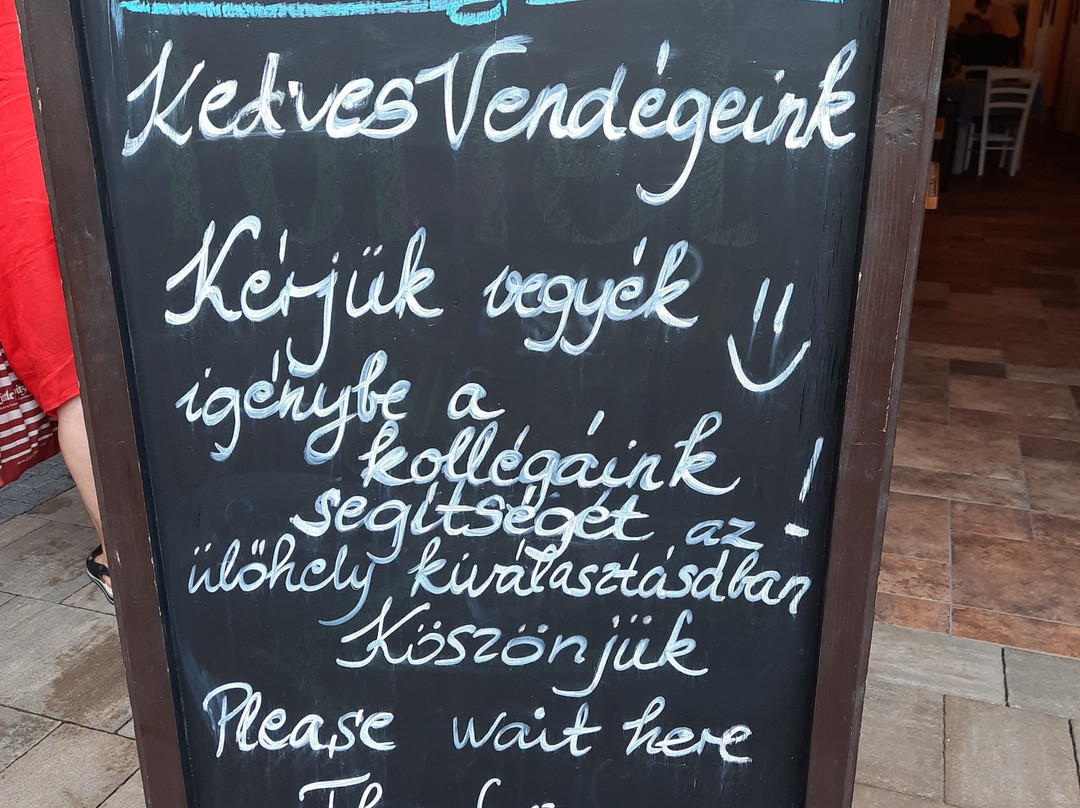 Kedves Vendégeink
Kérjük vegyék
igénybe a
kollégáink
segítségét az !
ülőhely kiválasztásdban
Köszönjük
Please wait here